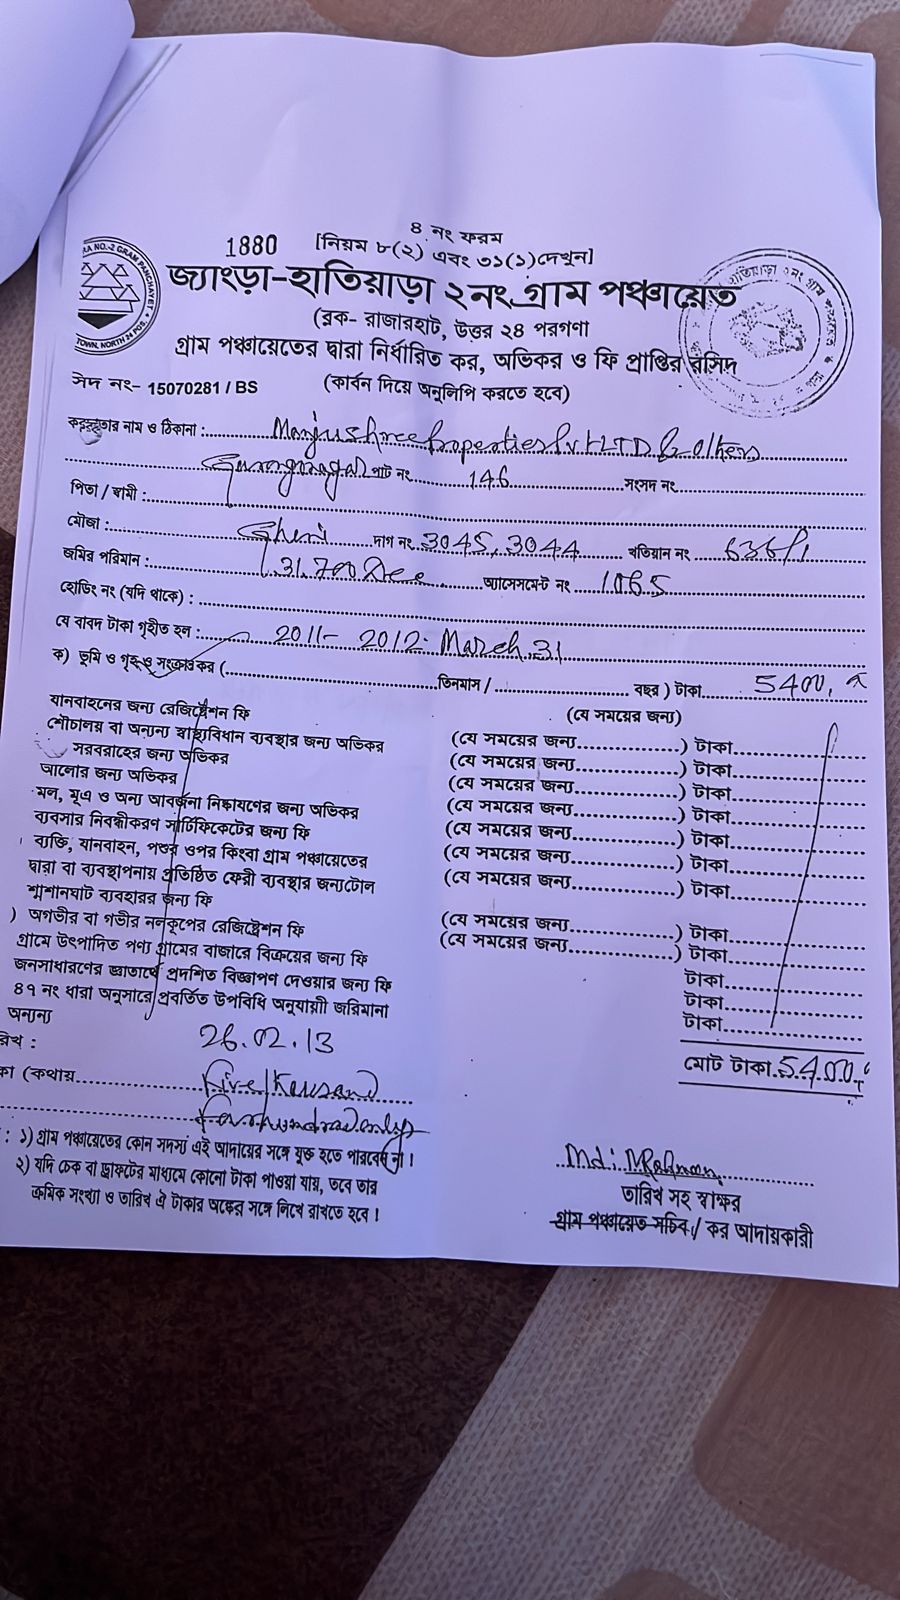 ৪ নং ফরম
1880 [নিয়ম ৮(২) এবং ৩১(১)দেখুন]
জ্যাংড়া-হাতিয়াড়া ২নং গ্রাম পঞ্চায়েত
(ব্লক- রাজারহাট, উত্তর ২৪ পরগণা
গ্রাম পঞ্চায়েতের দ্বারা নির্ধারিত কর, অভিকর ও ফি প্রাপ্তির রসিদ
সেদ নং- 15070281 / BS (কার্বন দিয়ে অনুলিপি করতে হবে)
নাম ও ঠিকানা : Manjushree Properties Pvt LTD & Others
পার্ট নং 146 সংসদ নং
পিতা / স্বামী :
মৌজা : Ghuni দাগ নং 3045, 3044 খতিয়ান নং 636/1
জমির পরিমান : 31.700 Dec অ্যাসেসমেন্ট নং 1065
হোল্ডিং নং (যদি থাকে) :
যে বাবদ টাকা গৃহীত হল : 2011- 2012. March 31
ক) ভূমি ও গৃহ ও সংক্রান্ত কর ( তিনমাস / বছর ) টাকা 5400
(যে সময়ের জন্য)
যানবাহনের জন্য রেজিষ্ট্রেশন ফি (যে সময়ের জন্য ) টাকা
শৌচালয় বা অন্যন্য স্বাস্থ্যবিধান ব্যবস্থার জন্য অভিকর (যে সময়ের জন্য ) টাকা
সরবরাহের জন্য অভিকর (যে সময়ের জন্য ) টাকা
আলোর জন্য অভিকর (যে সময়ের জন্য ) টাকা
মল, মূএ ও অন্য আবর্জনা নিষ্কাষণের জন্য অভিকর (যে সময়ের জন্য ) টাকা
ব্যবসার নিবন্ধীকরণ সার্টিফিকেটের জন্য ফি (যে সময়ের জন্য ) টাকা
ব্যক্তি, যানবাহন, পশুর ওপর কিংবা গ্রাম পঞ্চায়েতের
দ্বারা বা ব্যবস্থাপনায় প্রতিষ্ঠিত ফেরী ব্যবস্থার জন্যটোল (যে সময়ের জন্য ) টাকা
শ্মশানঘাট ব্যবহারর জন্য ফি
) অগভীর বা গভীর নলকূপের রেজিষ্ট্রেশন ফি (যে সময়ের জন্য ) টাকা
গ্রামে উৎপাদিত পণ্য গ্রামের বাজারে বিক্রয়ের জন্য ফি (যে সময়ের জন্য ) টাকা
জনসাধারণের জ্ঞাতার্থে প্রদর্শিত বিজ্ঞাপণ দেওয়ার জন্য ফি টাকা
৪৭ নং ধারা অনুসারে প্রবর্তিত উপবিধি অনুযায়ী জরিমানা টাকা
অন্যন্য টাকা
রিখ : 26.02.13
মোট টাকা 5400
কা (কথায় Five Thousand
Four hundred only
: ১) গ্রাম পঞ্চায়েতের কোন সদস্য এই আদায়ের সঙ্গে যুক্ত হতে পারবেন না !
২) যদি চেক বা ড্রাফটের মাধ্যমে কোনো টাকা পাওয়া যায়, তবে তার
ক্রমিক সংখ্যা ও তারিখ ঐ টাকার অঙ্কের সঙ্গে লিখে রাখতে হবে !
Md. M Rahman
তারিখ সহ স্বাক্ষর
গ্রাম পঞ্চায়েত সচিব / কর আদায়কারী